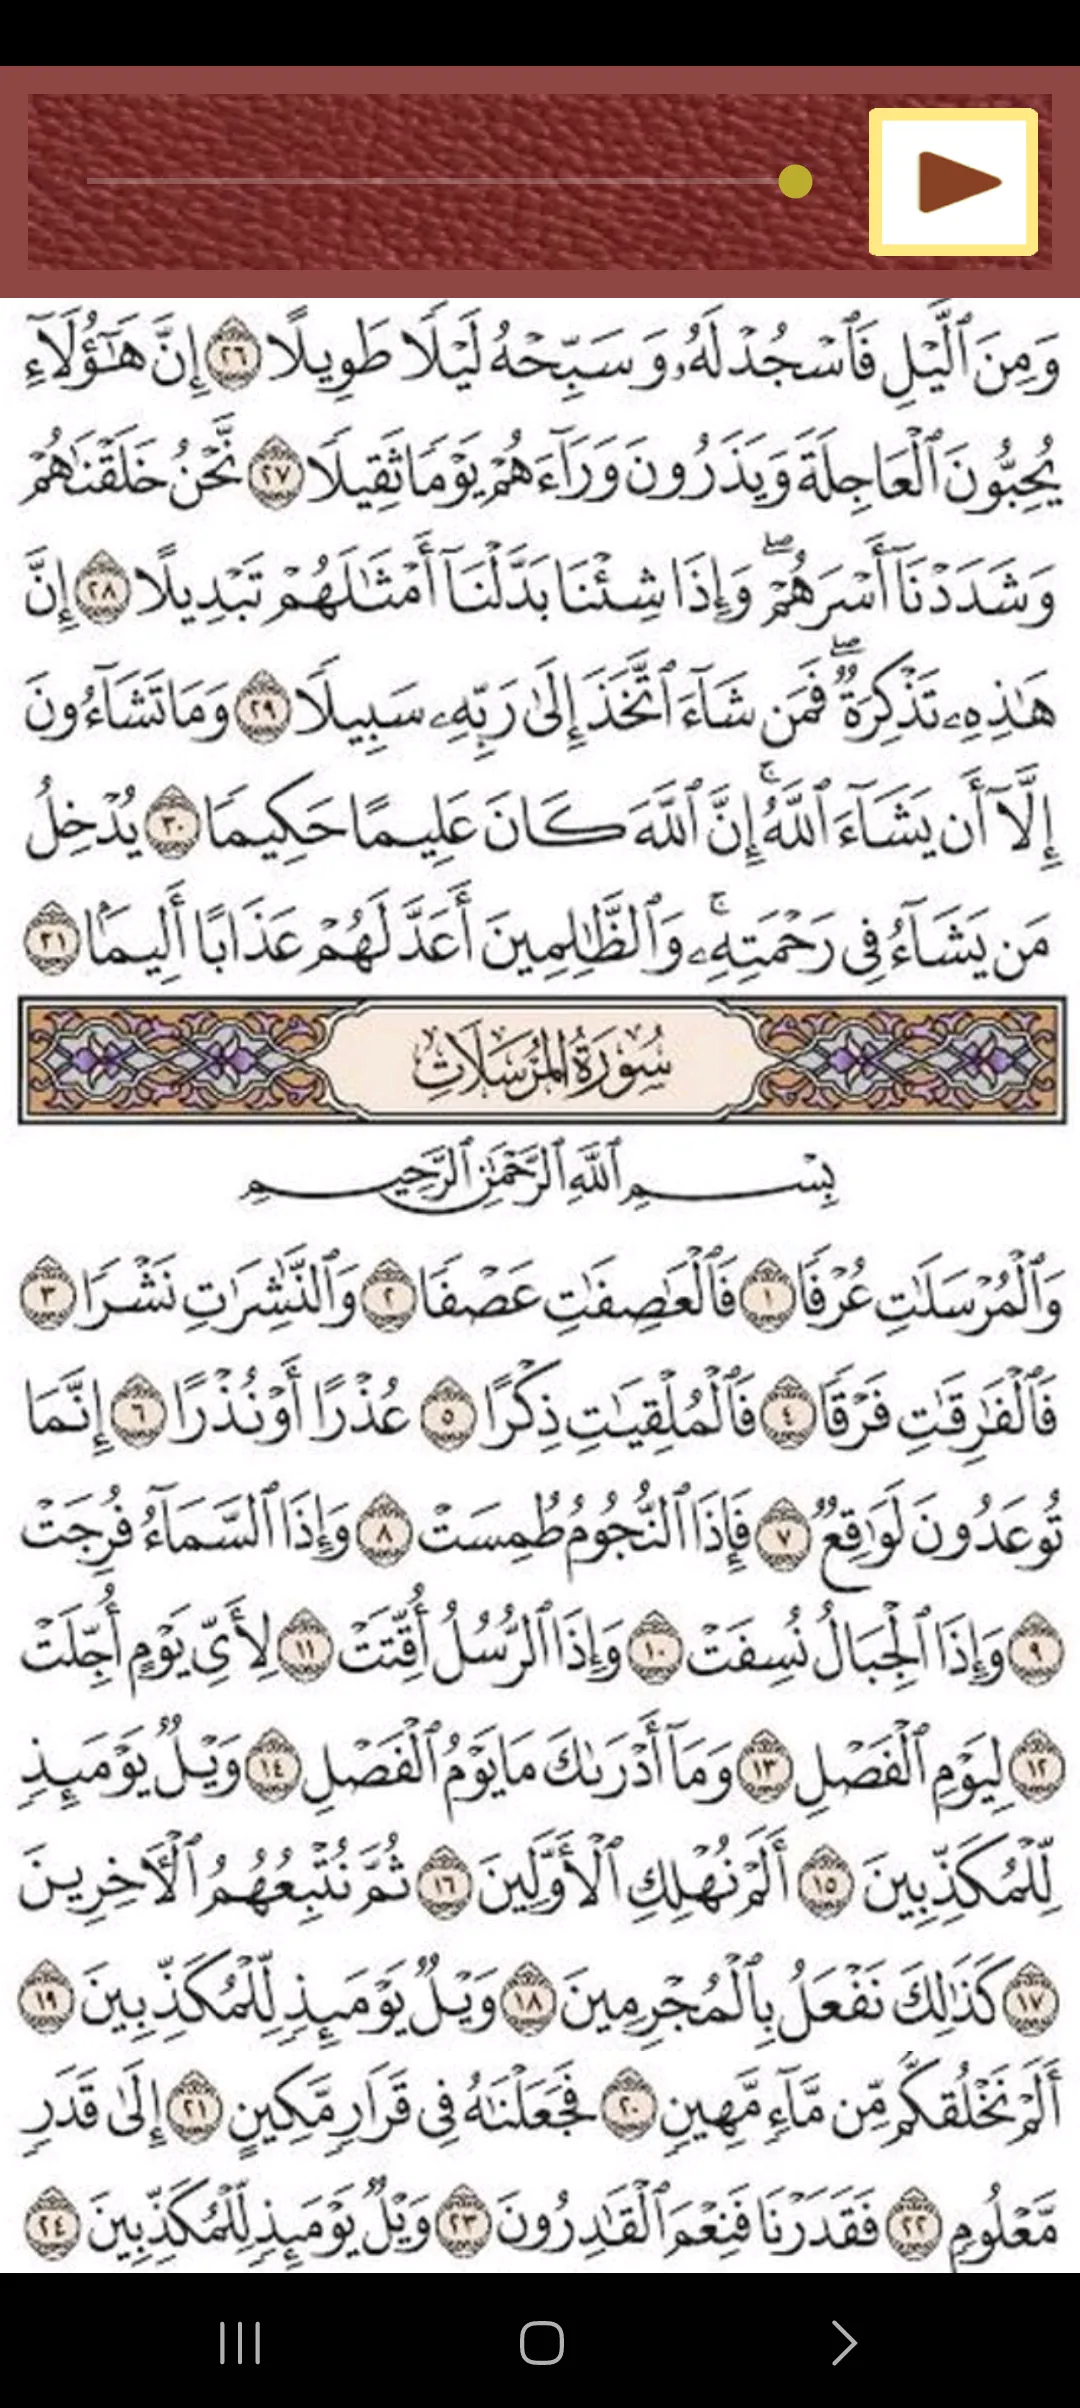 وَمِنَ ٱلَّيْلِ فَٱسْجُدْ لَهُۥ وَسَبِّحْهُ لَيْلًا طَوِيلًا ٢٦ إِنَّ هَٰٓؤُلَآءِ
يُحِبُّونَ ٱلْعَاجِلَةَ وَيَذَرُونَ وَرَآءَهُمْ يَوْمًا ثَقِيلًا ٢٧ نَّحْنُ خَلَقْنَٰهُمْ
وَشَدَدْنَآ أَسْرَهُمْ ۖ وَإِذَا شِئْنَا بَدَّلْنَآ أَمْثَٰلَهُمْ تَبْدِيلًا ٢٨ إِنَّ
هَٰذِهِۦ تَذْكِرَةٌ ۖ فَمَن شَآءَ ٱتَّخَذَ إِلَىٰ رَبِّهِۦ سَبِيلًا ٢٩ وَمَا تَشَآءُونَ
إِلَّآ أَن يَشَآءَ ٱللَّهُ ۚ إِنَّ ٱللَّهَ كَانَ عَلِيمًا حَكِيمًا ٣٠ يُدْخِلُ
مَن يَشَآءُ فِى رَحْمَتِهِۦ ۚ وَٱلظَّٰلِمِينَ أَعَدَّ لَهُمْ عَذَابًا أَلِيمًۢا ٣١
سُورَةُ المُرْسَلَاتِ
بِسْمِ ٱللَّهِ ٱلرَّحْمَٰنِ ٱلرَّحِيمِ
وَٱلْمُرْسَلَٰتِ عُرْفًا ١ فَٱلْعَٰصِفَٰتِ عَصْفًا ٢ وَٱلنَّٰشِرَٰتِ نَشْرًا ٣
فَٱلْفَٰرِقَٰتِ فَرْقًا ٤ فَٱلْمُلْقِيَٰتِ ذِكْرًا ٥ عُذْرًا أَوْ نُذْرًا ٦ إِنَّمَا
تُوعَدُونَ لَوَٰقِعٌ ٧ فَإِذَا ٱلنُّجُومُ طُمِسَتْ ٨ وَإِذَا ٱلسَّمَآءُ فُرِجَتْ
٩ وَإِذَا ٱلْجِبَالُ نُسِفَتْ ١٠ وَإِذَا ٱلرُّسُلُ أُقِّتَتْ ١١ لِأَىِّ يَوْمٍ أُجِّلَتْ
١٢ لِيَوْمِ ٱلْفَصْلِ ١٣ وَمَآ أَدْرَىٰكَ مَا يَوْمُ ٱلْفَصْلِ ١٤ وَيْلٌ يَوْمَئِذٍ
لِّلْمُكَذِّبِينَ ١٥ أَلَمْ نُهْلِكِ ٱلْأَوَّلِينَ ١٦ ثُمَّ نُتْبِعُهُمُ ٱلْءَاخِرِينَ
١٧ كَذَٰلِكَ نَفْعَلُ بِٱلْمُجْرِمِينَ ١٨ وَيْلٌ يَوْمَئِذٍ لِّلْمُكَذِّبِينَ ١٩
أَلَمْ نَخْلُقكُّم مِّن مَّآءٍ مَّهِينٍ ٢٠ فَجَعَلْنَٰهُ فِى قَرَارٍ مَّكِينٍ ٢١ إِلَىٰ قَدَرٍ
مَّعْلُومٍ ٢٢ فَقَدَرْنَا فَنِعْمَ ٱلْقَٰدِرُونَ ٢٣ وَيْلٌ يَوْمَئِذٍ لِّلْمُكَذِّبِينَ ٢٤